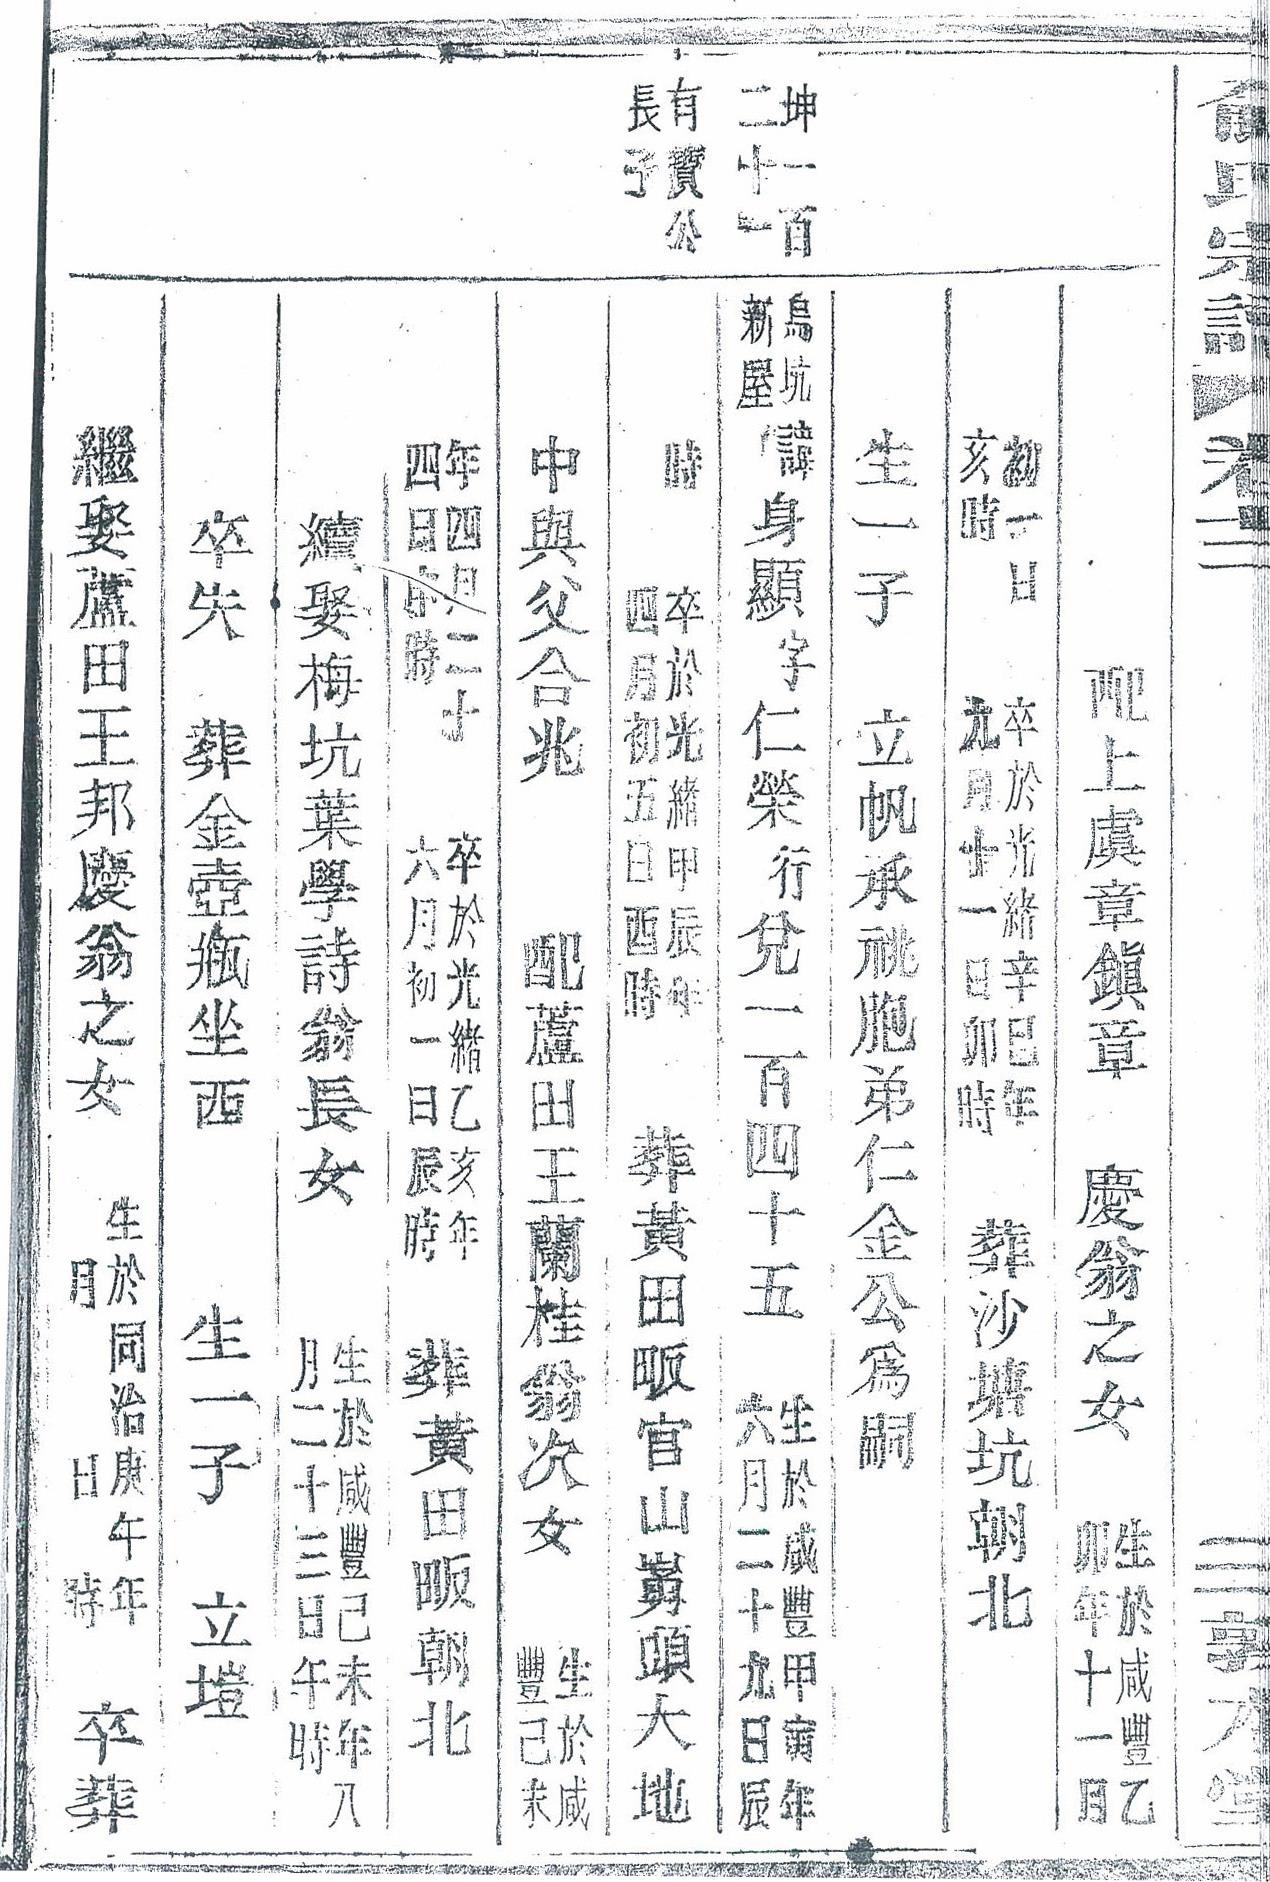 俞氏宗譜 卷三 敦本堂
配上虞章鎮章 慶翁之女 生於咸豐乙卯年十一月
初一日亥時 卒於光緒辛巳年九月十一日卯時 葬沙塘坑朝北
生一子 立帆承祧胞弟仁金公爲嗣
坤一百二十一 烏坑新屋 諱身顯 字仁榮 行兌一百四十五 生於咸豐甲寅年六月二十九日辰
有寶公長子 時 卒於光緒甲辰年四月初五日酉時 葬黃田畈官山嶴頭大地
中與父合兆 配蘆田王蘭桂翁次女 生於咸豐己未
年四月二十四日 時 卒於光緒乙亥年六月初一日辰時 葬黃田畈朝北
續娶梅坑葉學詩翁長女 生於咸豐己未年八月二十三日午時
卒失 葬金壺瓶坐西 生一子 立塏
繼娶蘆田王邦慶翁之女 生於同治庚午年 月 日 時 卒葬